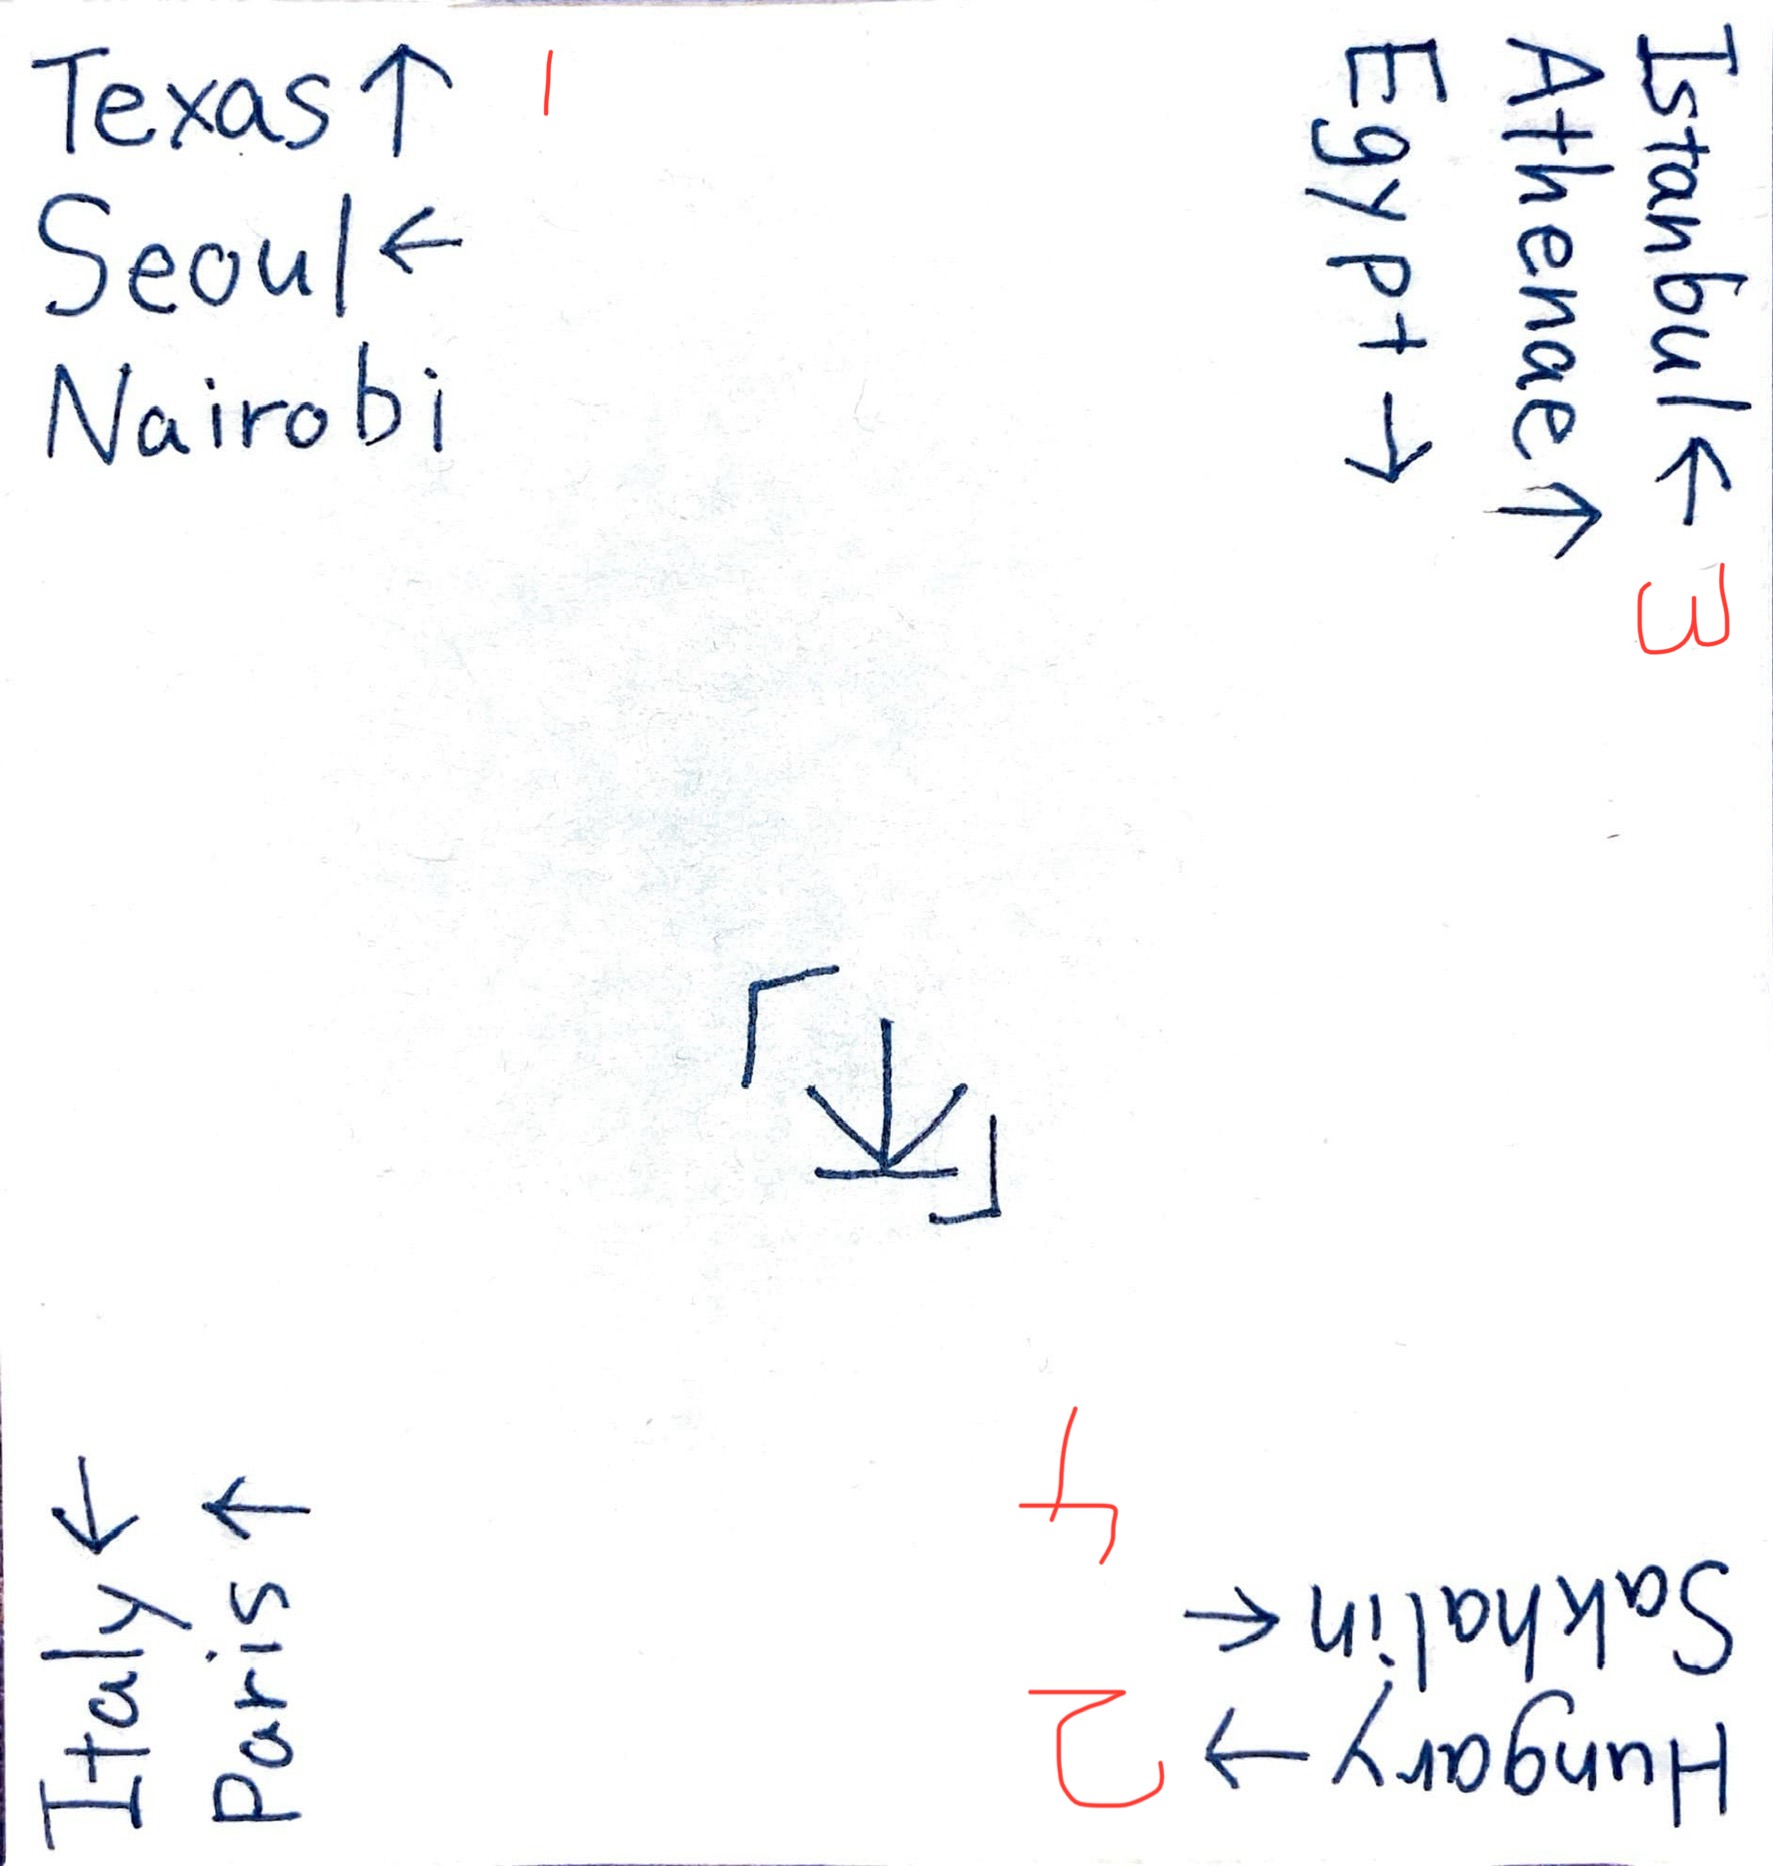 Texas ↑ 1
Seoul ←
Nairobi
Istanbul ← 3
Athenae ↑
Egypt →
「⤓」
Italy ←
Paris ↑
Hungary → 2
Sakhalin ← 4